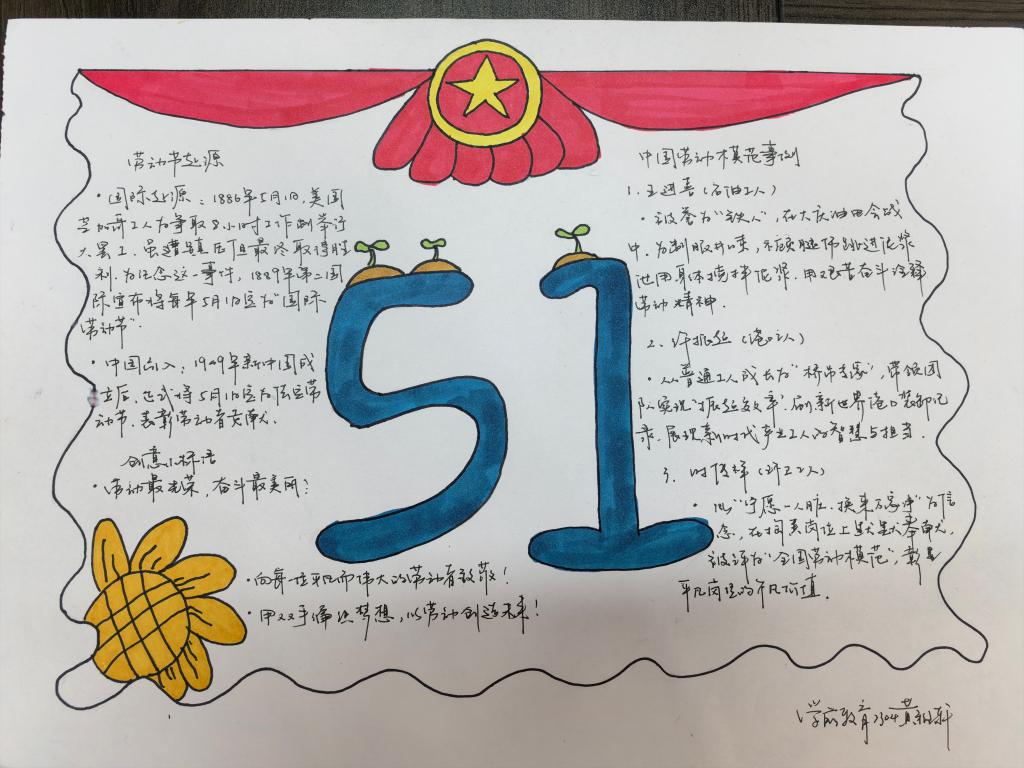 劳动节起源
·国际起源：1886年5月1日,美国
芝加哥工人为争取8小时工作制举行
大罢工,虽遭镇压但最终取得胜
利.为纪念这一事件，1889年第二国
际宣布将每年5月1日定为"国际
劳动节".
·中国引入：1949年新中国成
立后,正式将5月1日定为法定劳
动节.表彰劳动者贡献.
创意小标语
·劳动最光荣，奋斗最美丽！
·向每一位平凡而伟大的劳动者致敬！
·用双手编织梦想,以劳动创造未来！
51
中国劳动模范事例
1.王进喜(石油工人)
·被誉为"铁人",在大庆油田会战
中.为制服井喷,不顾腿伤跳进泥浆
池用身体搅拌泥浆.用艰苦奋斗诠释
劳动精神.
2、许振超(港口工人)
·从普通工人成长为"桥吊专家",带领团
队实现"振超效率",刷新世界港口装卸纪
录.展现新时代产业工人的智慧与担当.
3、时传祥(环卫工人)
·以"宁愿一人脏、换来万家净"为信
念,在掏粪岗位上默默奉献,
被评为"全国劳动模范",彰显
平凡岗位的不凡价值.
学前教育